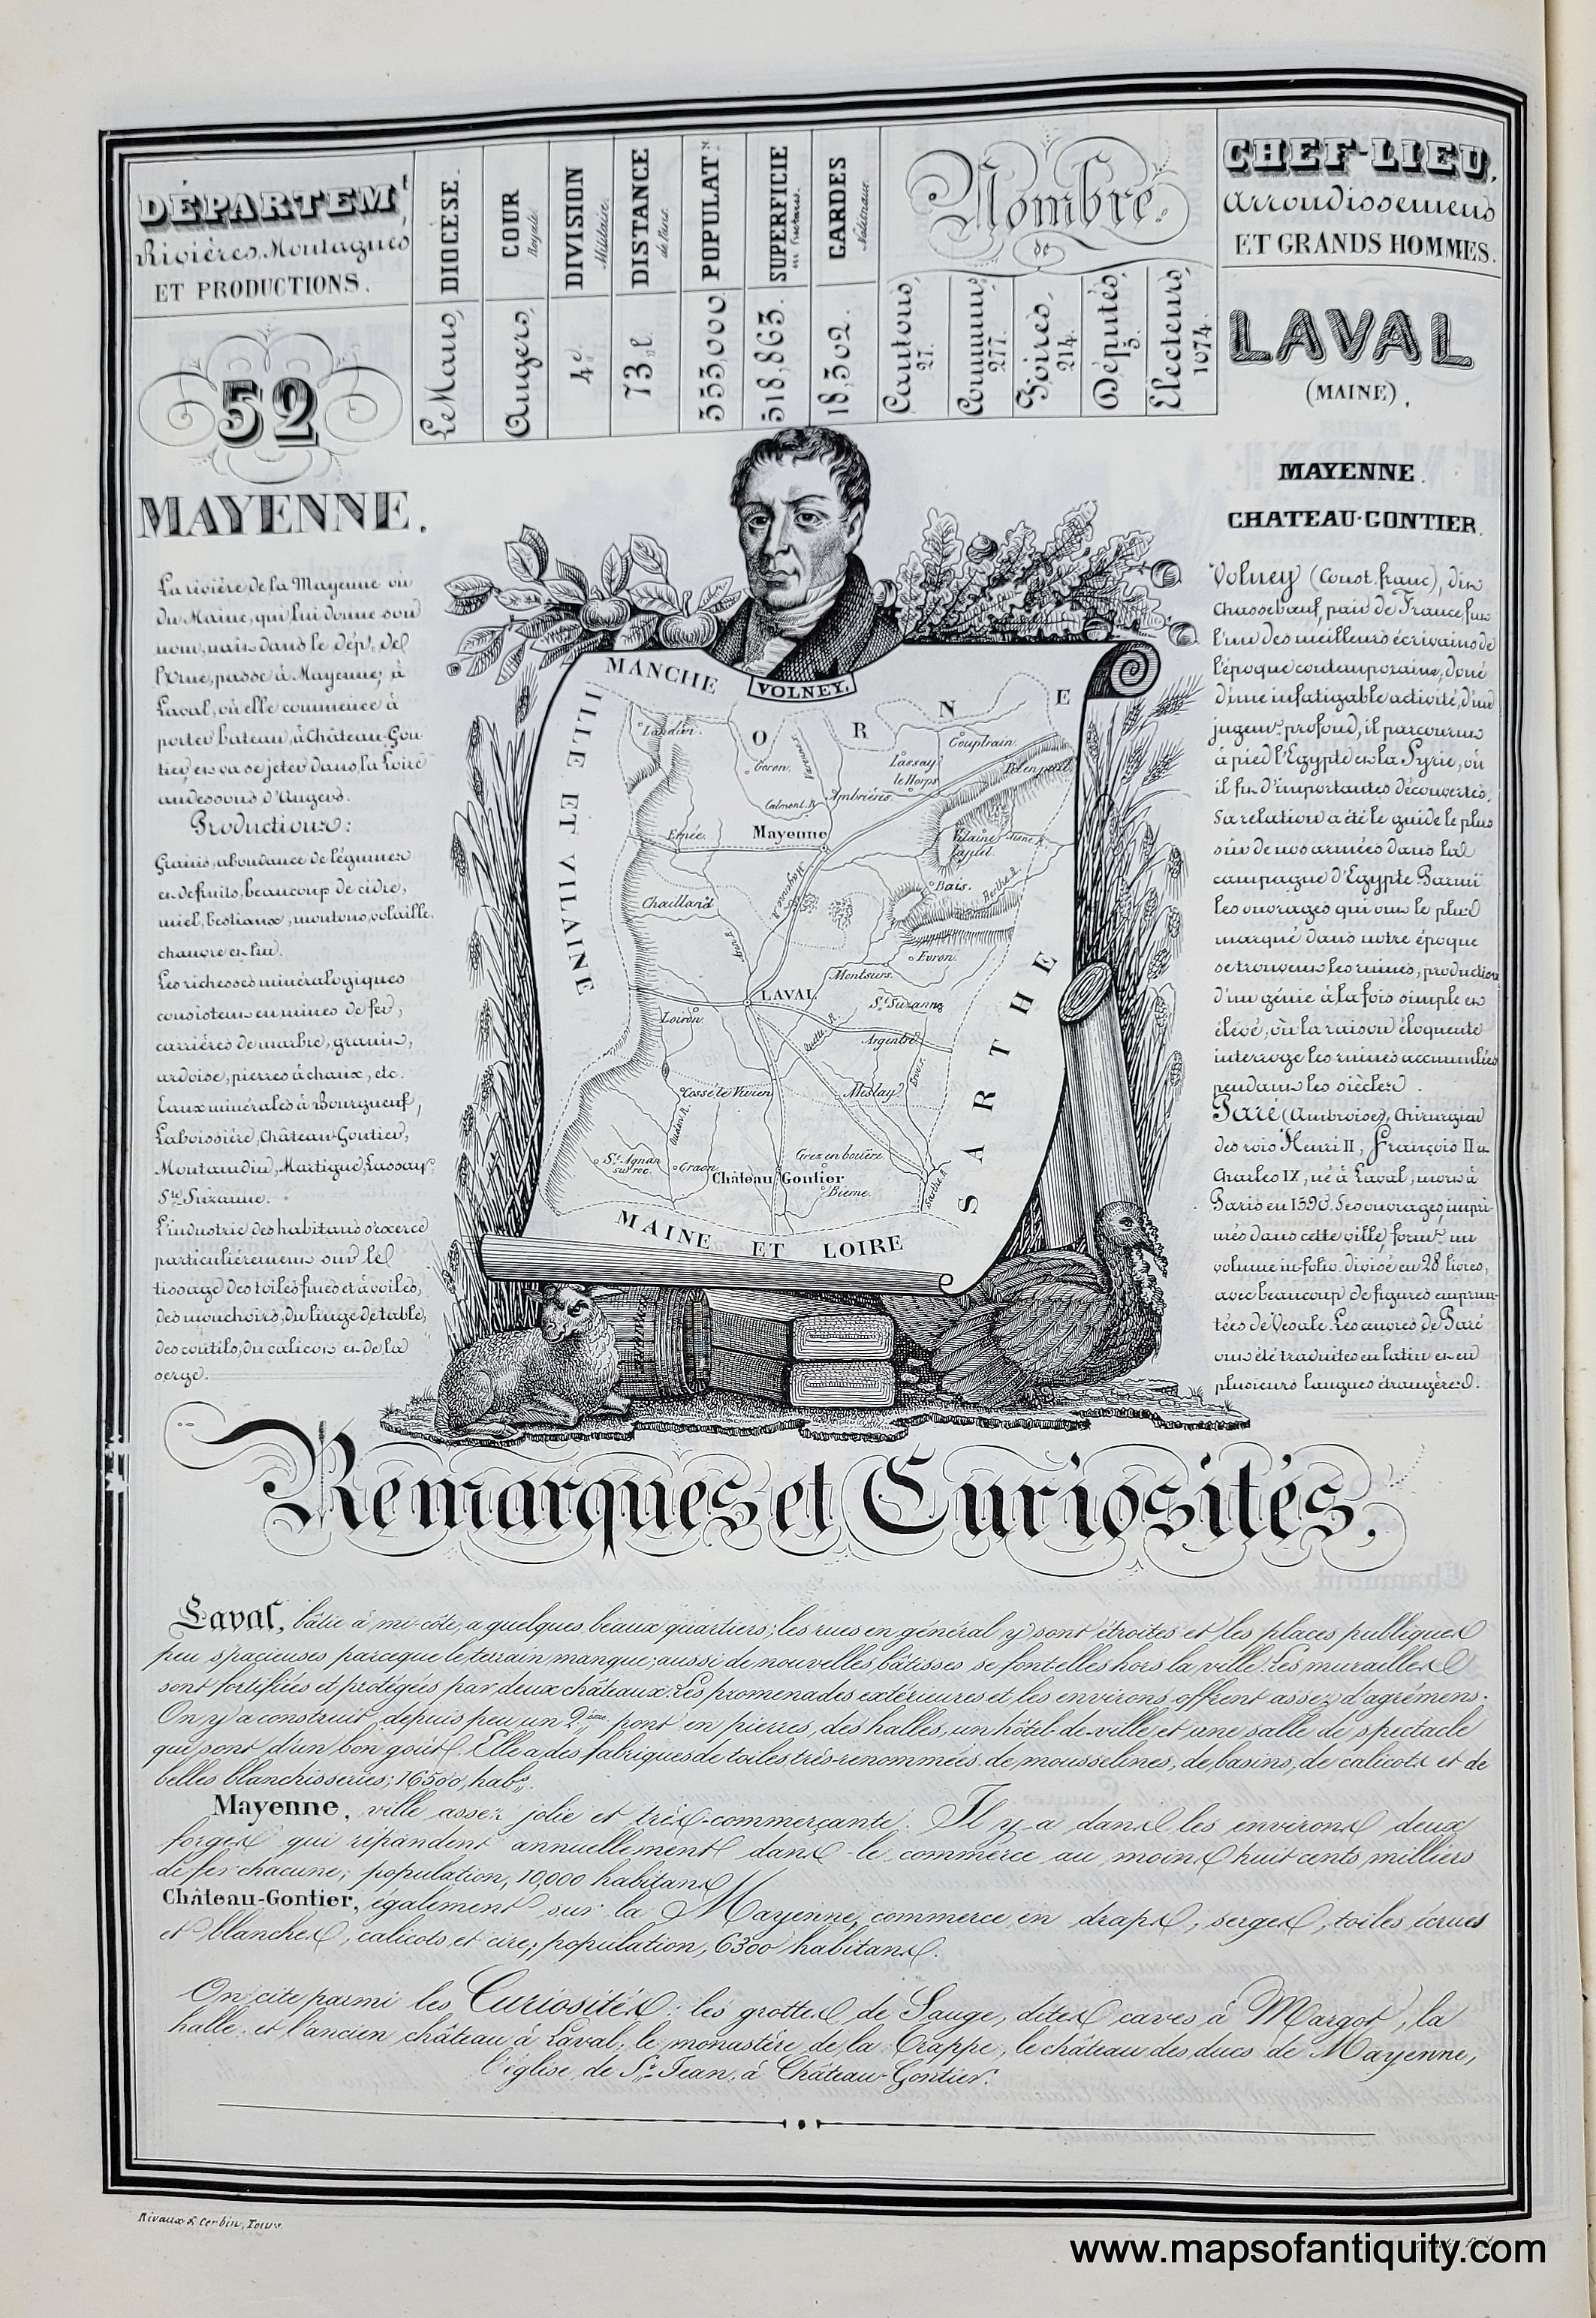 DÉPARTEMt
Rivières, Montagnes
ET PRODUCTIONS.
DIOCÈSE.
Le Mans,
COUR
Royale
Angers,
DIVISION
Militaire.
4e.
DISTANCE
de Paris.
73 l.
POPULATn
353,000.
SUPERFICIE
en hectares.
518,863.
GARDES
Nationaux.
18,302.
Nombre
de
Cantons,
27.
Communes,
277.
Foires,
214.
Députés,
5.
Électeurs,
1074.
CHEF-LIEU,
Arrondissemens
ET GRANDS HOMMES.
52
MAYENNE.
La rivière de la Mayenne ou
du Maine, qui lui donne son
nom, nait dans le dép. de
l'Orne, passe à Mayenne, à
Laval, où elle commence à
porter bateau, à Château-Gon-
tier, et va se jeter dans la Loire
au dessous d'Angers.
Productions:
Grains, abondance de légumes
et de fruits, beaucoup de cidre,
miel, bestiaux, moutons, volaille,
chanvre et lin.
Les richesses minéralogiques
consistent en mines de fer,
carrières de marbre, granit,
ardoise, pierres à chaux, etc.
Eaux minérales à Bourgneuf,
Laboissière, Château-Gontier,
Montaudin, Martigné, Lassay
Ste Suzanne.
L'industrie des habitans s'exerce
particulièrement sur le
tissage des toiles fines et à voiles,
des mouchoirs, du linge de table,
des coutils, du calicot et de la
serge.
VOLNEY.
MANCHE
ORNE
ILLE ET VILAINE
SARTHE
MAINE ET LOIRE
Landivi.
Goron.
Varennes
Couptrain.
Lassay
le Horps
Prèenpail
Calmont R.
Ambrières.
Ernée.
Mayenne
Vilaine
Juhel.
Mayenne R.
Bais.
Berthe R.
Chailland
Evron.
Montsurs.
LAVAL
Ste Suzanne
Loiron.
Argentré
Cossé le Vivien
Meslay
Oudon R.
Grez en bouère.
St Agnan
sur roc.
Craon
Château Gontier
Bierne.
Sarthe R.
LAVAL
(MAINE).
MAYENNE.
CHATEAU-GONTIER.
Volney (Const. franc), dit
Chassebœuf, pair de France, fut
l'un des meilleurs écrivains de
l'époque contemporaine, doué
d'une infatigable activité, d'un
jugemt profond, il parcourut
à pied l'Egypte et la Syrie, où
il fit d'importantes découvertes.
Sa relation a été le guide le plus
sûr de nos armées dans la
campagne d'Egypte. Parmi
les ouvrages qui ont le plus
marqué dans notre époque
se trouvent les ruines, production
d'un génie à la fois simple et
élevé, où la raison éloquente
interroge les ruines accumulées
pendant les siècles.
Paré (Ambroise), Chirurgien
des rois Henri II, François II et
Charles IX, né à Laval, mort à
Paris en 1590. Ses ouvrages, impri-
més dans cette ville, formt un
volume in-folio divisé en 28 livres,
avec beaucoup de figures emprun-
tées de Vesale. Les œuvres de Paré
ont été traduites en latin et en
plusieurs langues étrangères.
Remarques et Curiosités.
Laval, bâtie à mi-côte, a quelques beaux quartiers; les rues en général y sont étroites et les places publiques
peu spacieuses parceque le terrain manque; aussi de nouvelles bâtisses se font-elles hors la ville. Les murailles
sont fortifiées et protégées par deux châteaux. Les promenades extérieures et les environs offrent assez d'agrémens.
On y a construit depuis peu un 2ième pont en pierres, des halles, un hôtel-de-ville et une salle de spectacle
qui sont d'un bon goût. Elle a des fabriques de toiles très-renommées, de mousselines, de basins, de calicots et de
belles blanchisseries; 16500, habts.
Mayenne, ville assez jolie et très-commerçante. Il y a dans les environs deux
forges qui répandent annuellement dans le commerce au moins huit cents milliers
de fer chacune; population, 10,000 habitans.
Château-Gontier, également sur la Mayenne, commerce en draps, serges, toiles écrues
et blanches, calicots et cire; population, 6300 habitans.
On cite parmi les Curiosités: les grottes de Sauge, dites caves à Margot, la
halle et l'ancien château à Laval, le monastère de la Trappe, le château des ducs de Mayenne,
l'église de St Jean, à Château-Gontier.
Rivaux & Corbin, Tours.
www.mapsofantiquity.com